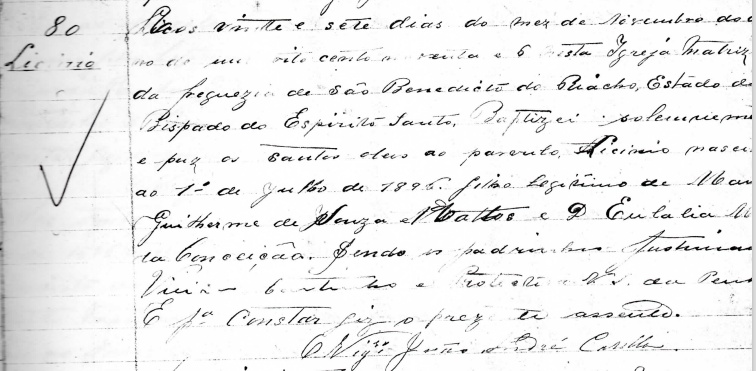 80
Licinio
Aos vinte e sete dias do mez de Novembro do
no de mil oito cento noventa e 6 nesta Igreja Matriz
da freguezia de São Benedicto do Riacho, Estado
Bispado do Espirito Santo, Baptizei solemneme
e puz os santos oleos ao parvulo Licinio nasci
ao 1º de Julho de 1896. filho legitimo de
Guilherme de Souza e Mattos e D. Eulalia M
da Conceição. Sendo os padrinhos
Coutinho e da
E pª constar fiz o prezte assento.
O Vigrº João André